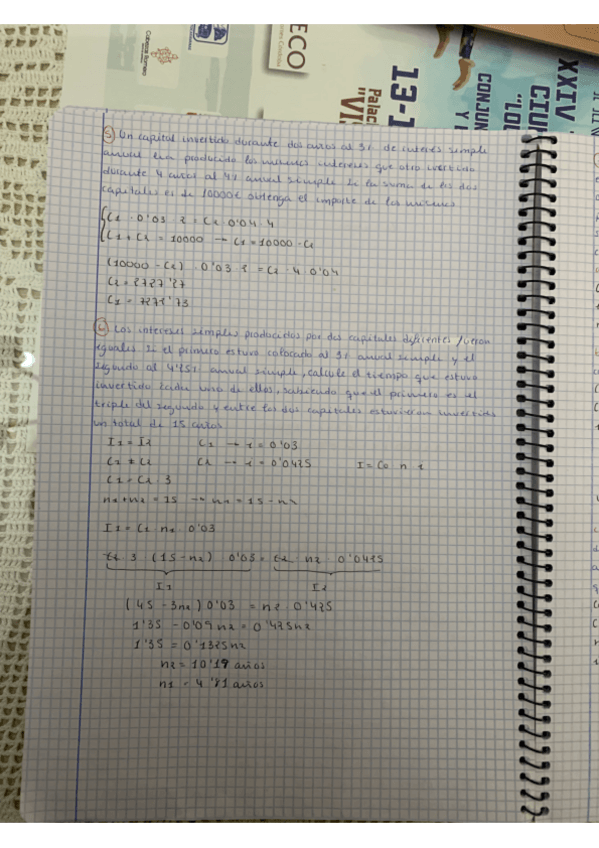 Cabeza Romero
ECO
13-1
Palac
"VI
CONJUN
Y
XXIV
CIU
"LO
5 Un capital invertido durante dos años al 3% de interés simple
anual ha producido los mismos intereses que otro invertido
durante 4 años al 4% anual simple. Si la suma de los dos
capitales es de 10000€ obtenga el importe de los mismos
C1 · 0'03 · 2 = C2 · 0'04 · 4
C1 + C2 = 10000 → C1 = 10000 - C2
(10000 - C2) · 0'03 · 2 = C2 · 4 · 0'04
C2 = 2727'27
C1 = 7272'73
6 Los intereses simples producidos por dos capitales diferentes fueron
iguales. Si el primero estuvo colocado al 3% anual simple y el
segundo al 4'25% anual simple, calcule el tiempo que estuvo
invertido cada uno de ellos, sabiendo que el primero es el
triple del segundo y entre los dos capitales estuvieron invertidos
un total de 15 años
I1 = I2 C1 → i = 0'03
C1 ≠ C2 C2 → i = 0'0425 I = C0 · n · i
C1 = C2 · 3
n1 + n2 = 15 → n1 = 15 - n2
I1 = C1 · n1 · 0'03
C2 · 3 · (15 - n2) · 0'03 = C2 · n2 · 0'0425
I1 I2
(45 - 3n2) 0'03 = n2 · 0'425
1'35 - 0'09 n2 = 0'425 n2
1'35 = 0'1325 n2
n2 = 10'19 años
n1 = 4'81 años